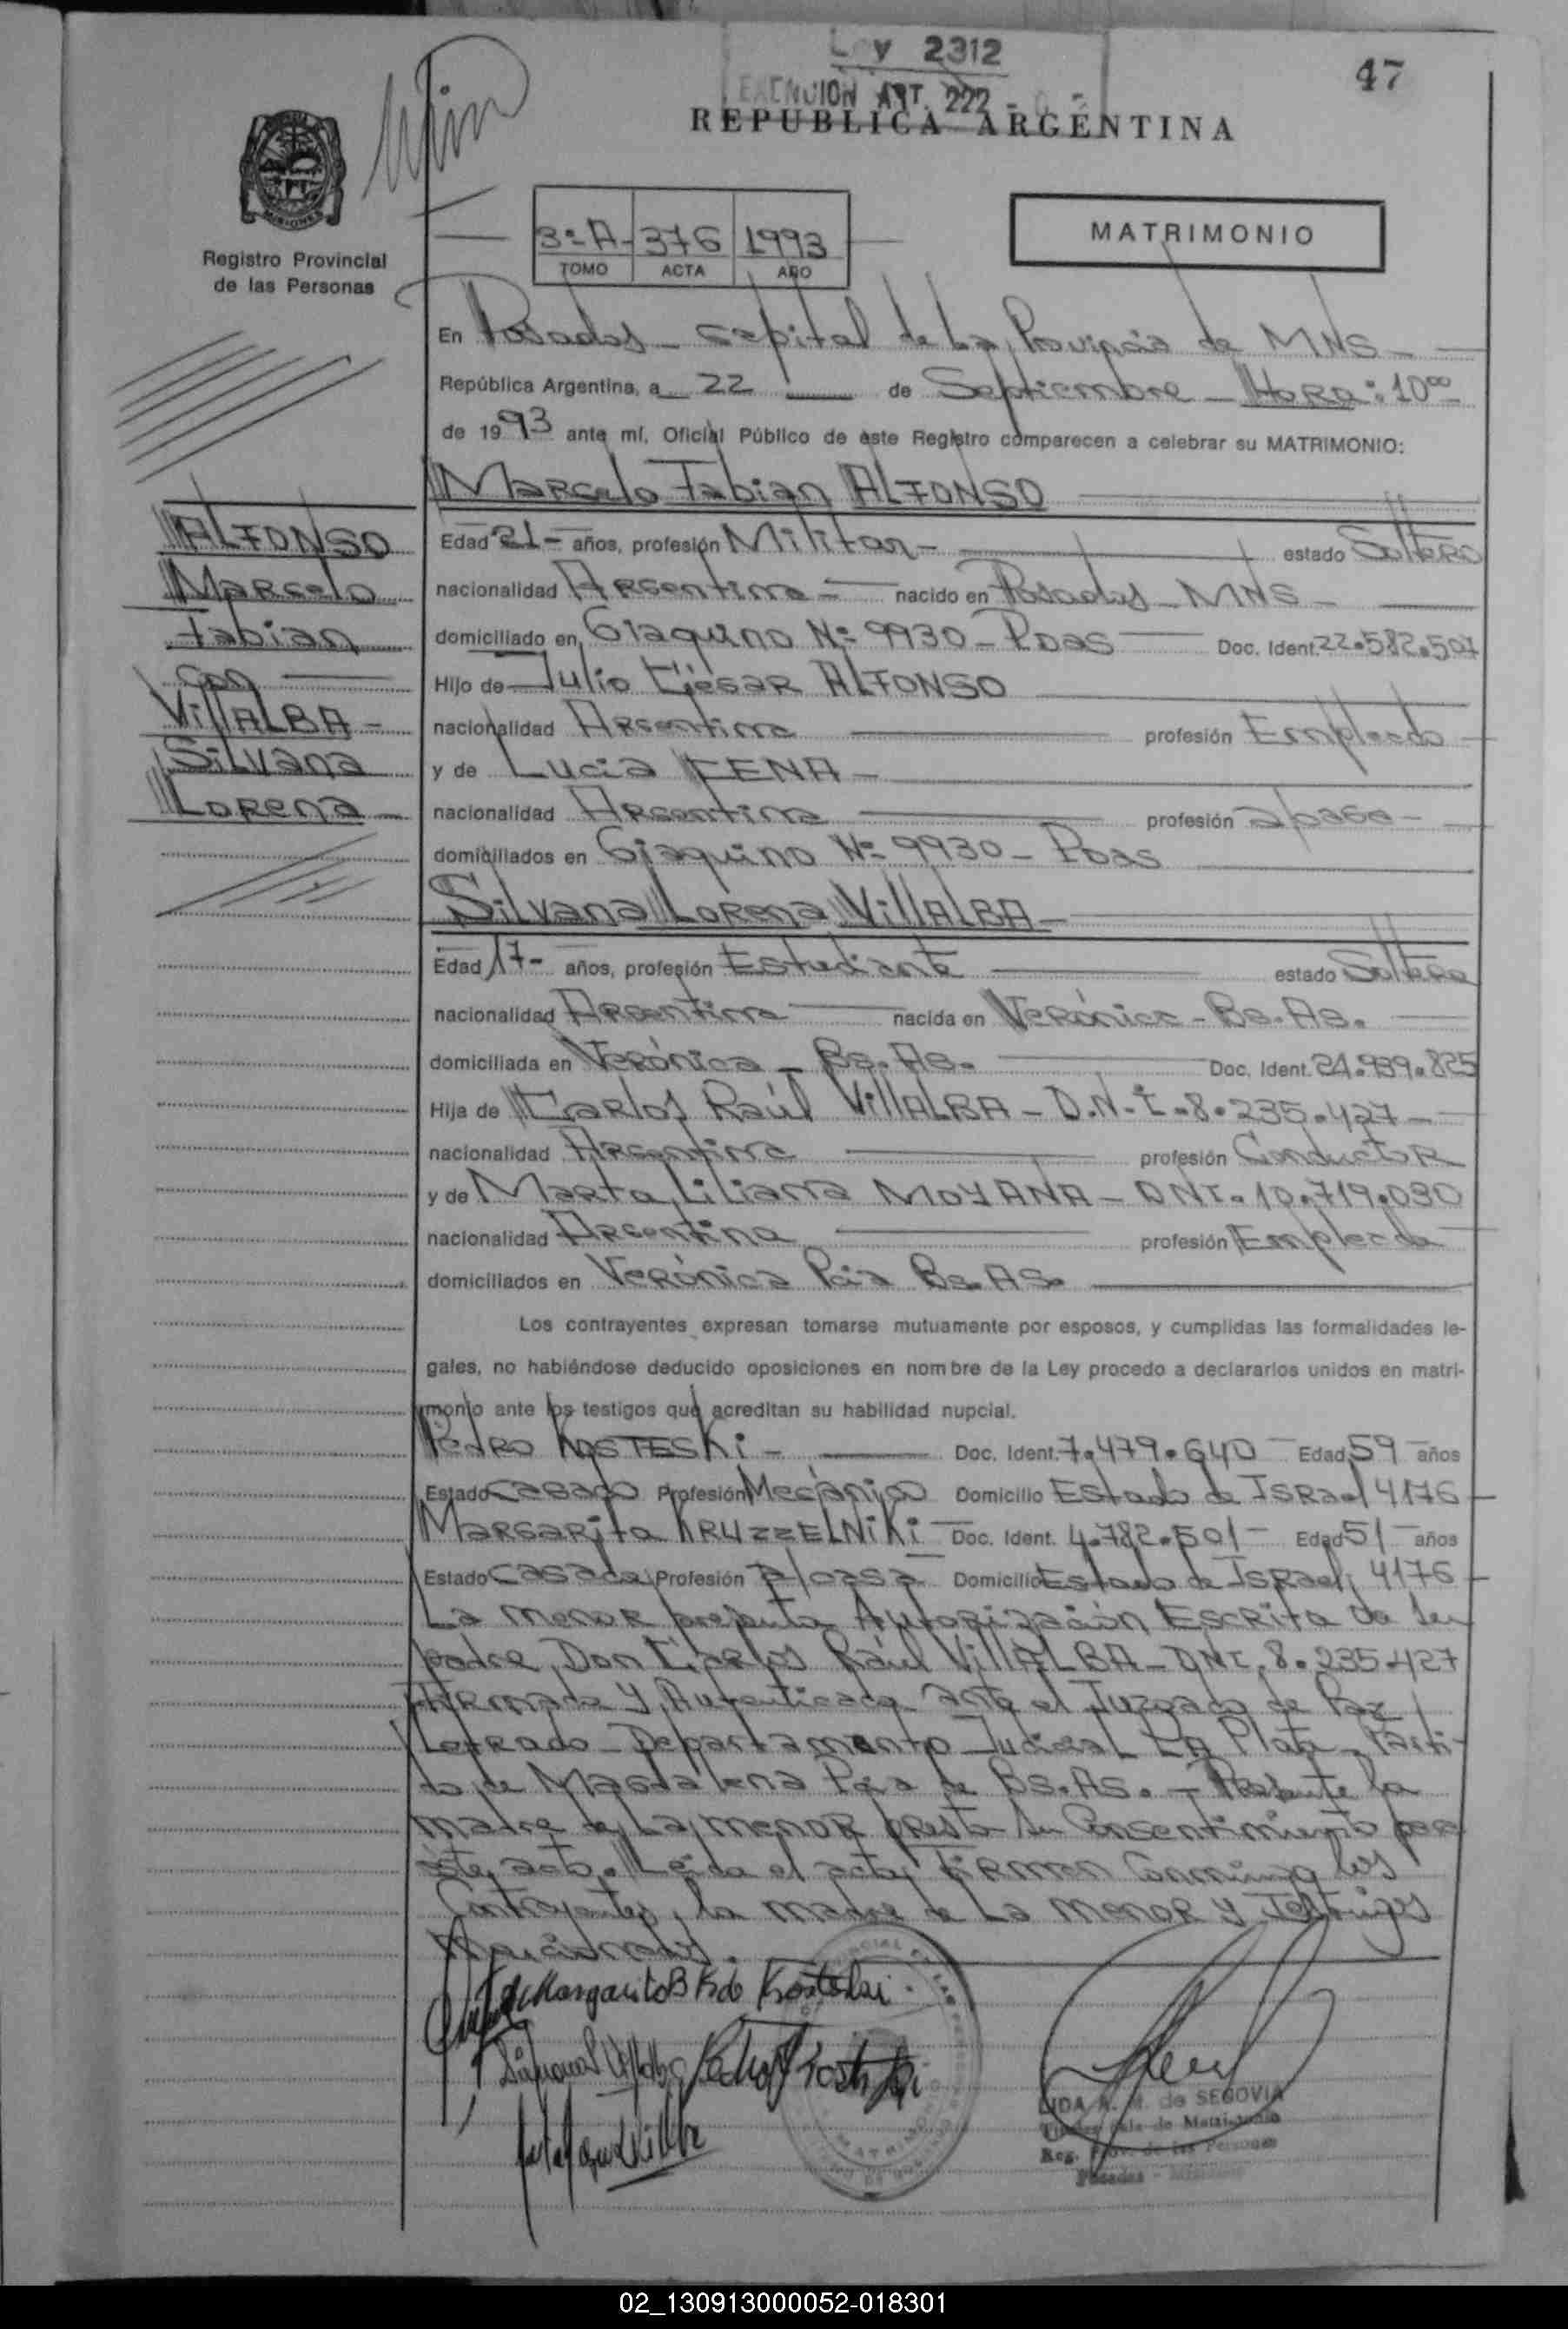 Ley 2312
EXENCION ART. 222
47
REPUBLICA ARGENTINA
MISIONES
Registro Provincial
de las Personas
3º-A- 376 1993
TOMO ACTA AÑO
MATRIMONIO
En Posadas - Capital de La Provincia de MNS -
República Argentina, a 22 de Septiembre - Hora: 10⁰⁰
de 1993 ante mí, Oficial Público de este Registro comparecen a celebrar su MATRIMONIO:
Marcelo Fabian ALFONSO
ALFONSO
Marcelo
Fabian
con
VillALBA -
Silvana
Lorena -
Edad 21 - años, profesión Militar - estado Soltero
nacionalidad Argentina - nacido en Posadas - MNS -
domiciliado en Giaquino Nº 9930 - Pdas Doc. Ident. 22.582.507
Hijo de Julio César ALFONSO
nacionalidad Argentina profesión Empleado
y de Lucia
nacionalidad Argentina profesión a/casa -
domiciliados en Giaquino Nº 9930 - Pdas
Silvana Lorena VillALBA -
Edad 17 - años, profesión Estudiante estado Soltera
nacionalidad Argentina nacida en Verónica - Bs. As.
domiciliada en Verónica - Bs. As. Doc. Ident. 24.939.825
Hija de Carlos Raúl VillALBA - D.N.I. 8.235.427 -
nacionalidad Argentina profesión Conductor
y de Marta Liliana MOYANA - DNI. 10.719.030
nacionalidad Argentina profesión Empleada
domiciliados en Verónica Pcia Bs. As.
Los contrayentes expresan tomarse mutuamente por esposos, y cumplidas las formalidades le-
gales, no habiéndose deducido oposiciones en nombre de la Ley procedo a declararlos unidos en matri-
monio ante los testigos que acreditan su habilidad nupcial.
Pedro KOSTESKi - Doc. Ident. 7.479.640 - Edad 59 años
Estado Casado Profesión Mecánico Domicilio Estado de Israel 4176
Margarita KRUZZELNiKi - Doc. Ident. 4.782.501 - Edad 51 años
Estado Casada Profesión a/casa Domicilio Estado de Israel, 4176
La menor presenta Autorización Escrita de su
padre, Don Carlos Raúl VillALBA - DNI. 8.235.427
Firmada y Autenticada ante el Juzgado de Paz
Letrado - Departamento Judicial La Plata - Parti-
do de Magdalena Pcia de Bs. As. - Presente la
madre de La menor presta su Consentimiento para
éste acto. Leida el acta, firman Conmigo los
Contrayentes, la madre de La menor y Testigos
Mencionados.
Margarita B K de Kosteski
Silvana L Villalba Pedro Kosteski
LIDA A. M. de SEGOVIA
Titular Sala de Matrimonio
Reg. Prov. de las Personas
Posadas - Misiones
02_130913000052-018301